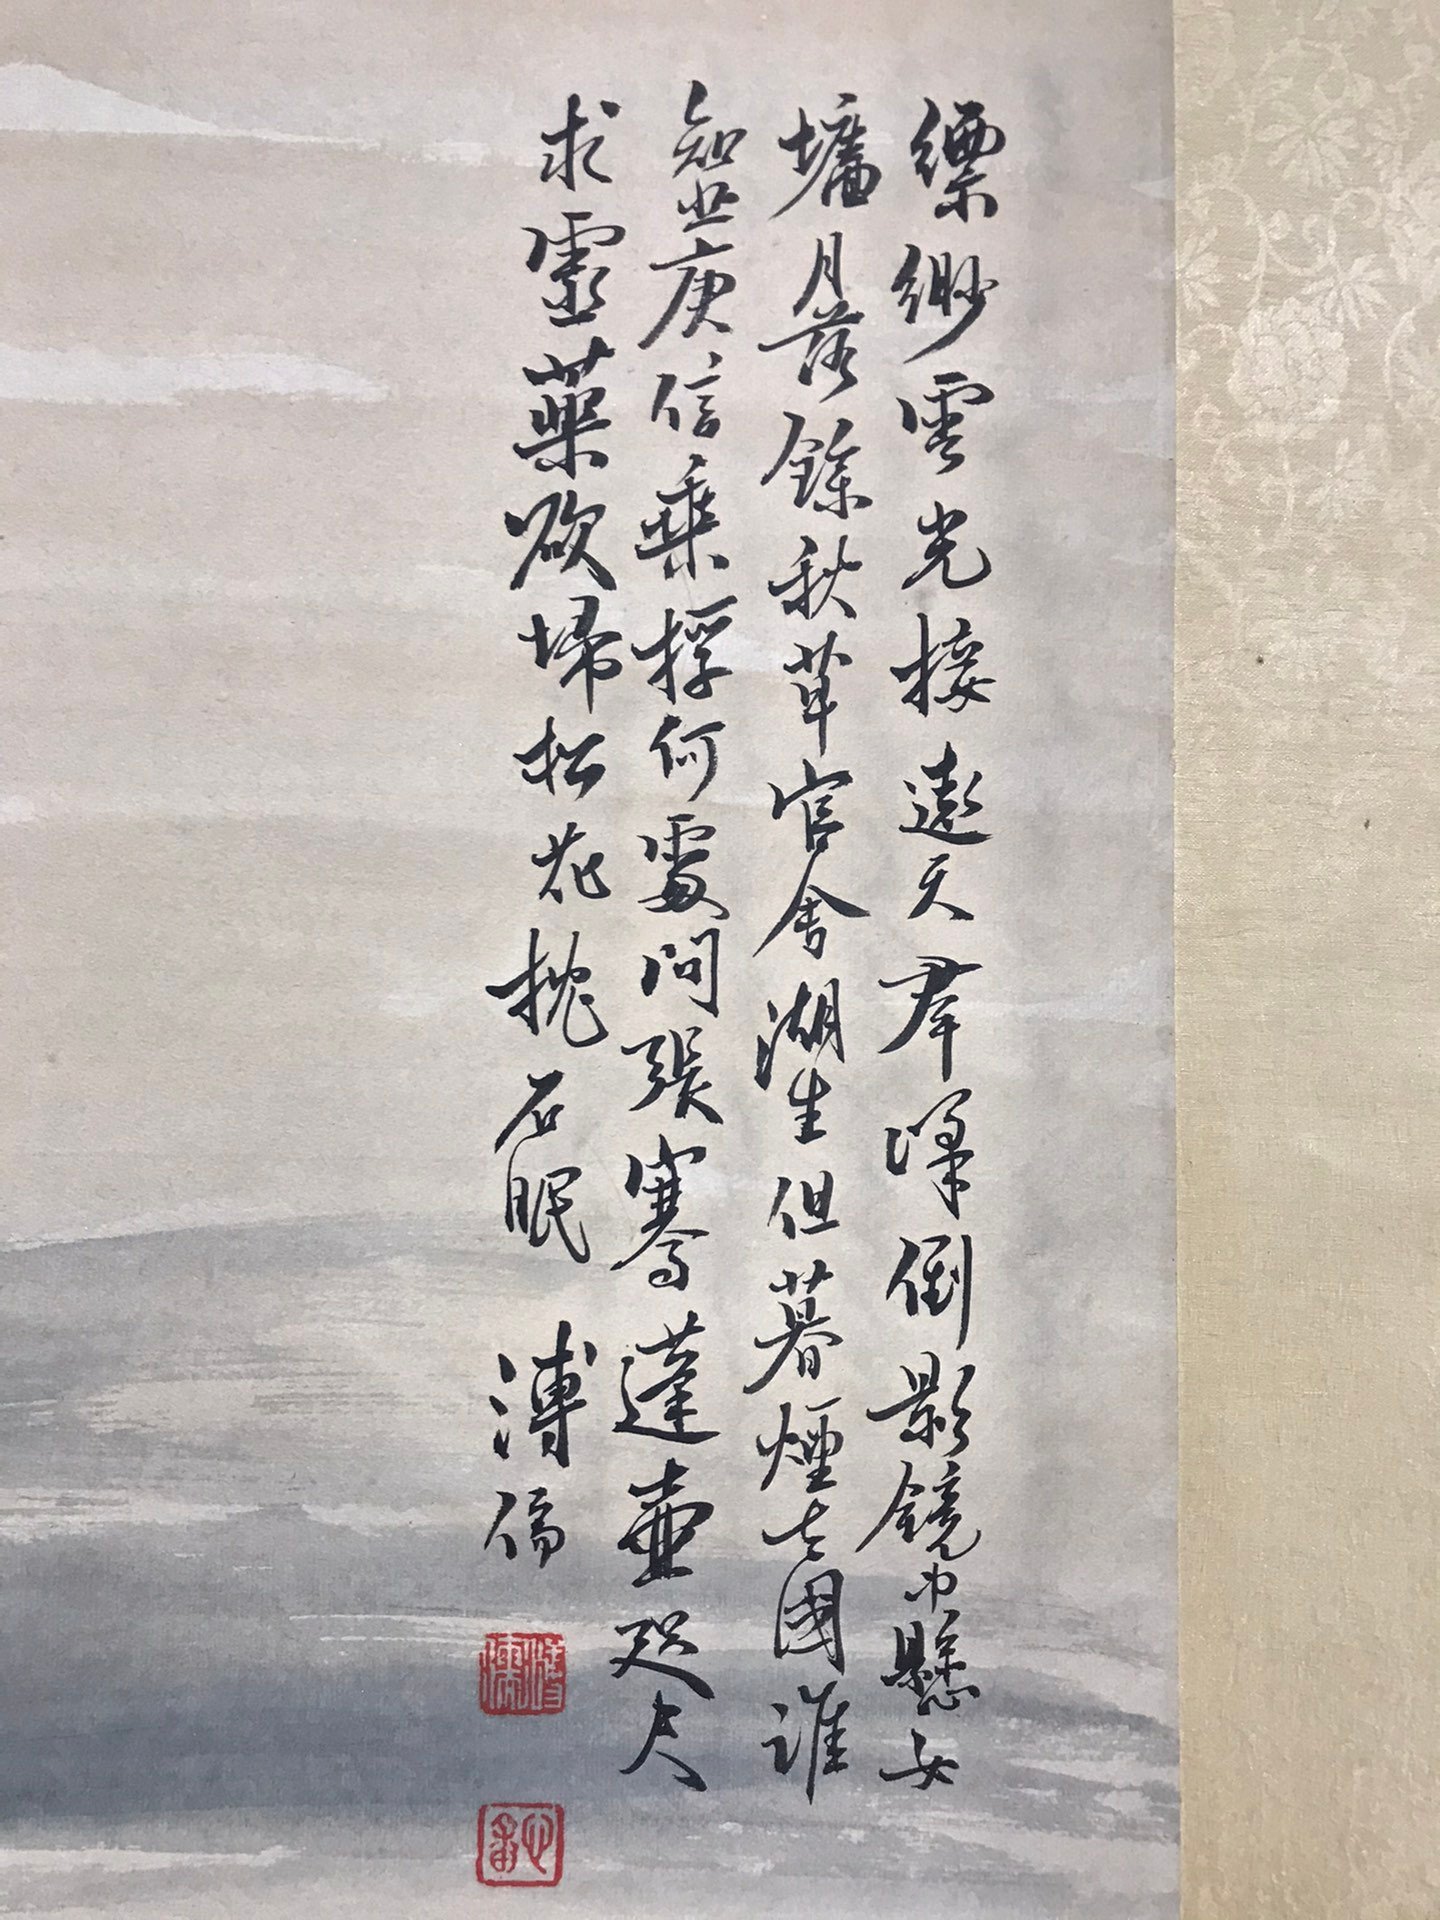 縹緲雲光接遠天羣峰倒影鏡中懸女
墻月落餘秋草官舍湖生但暮煙去國誰
知庾信乘桴何處問張騫蓬壺咫尺
求靈藥欲埽松花枕石眠 溥儒
溥儒
心畬